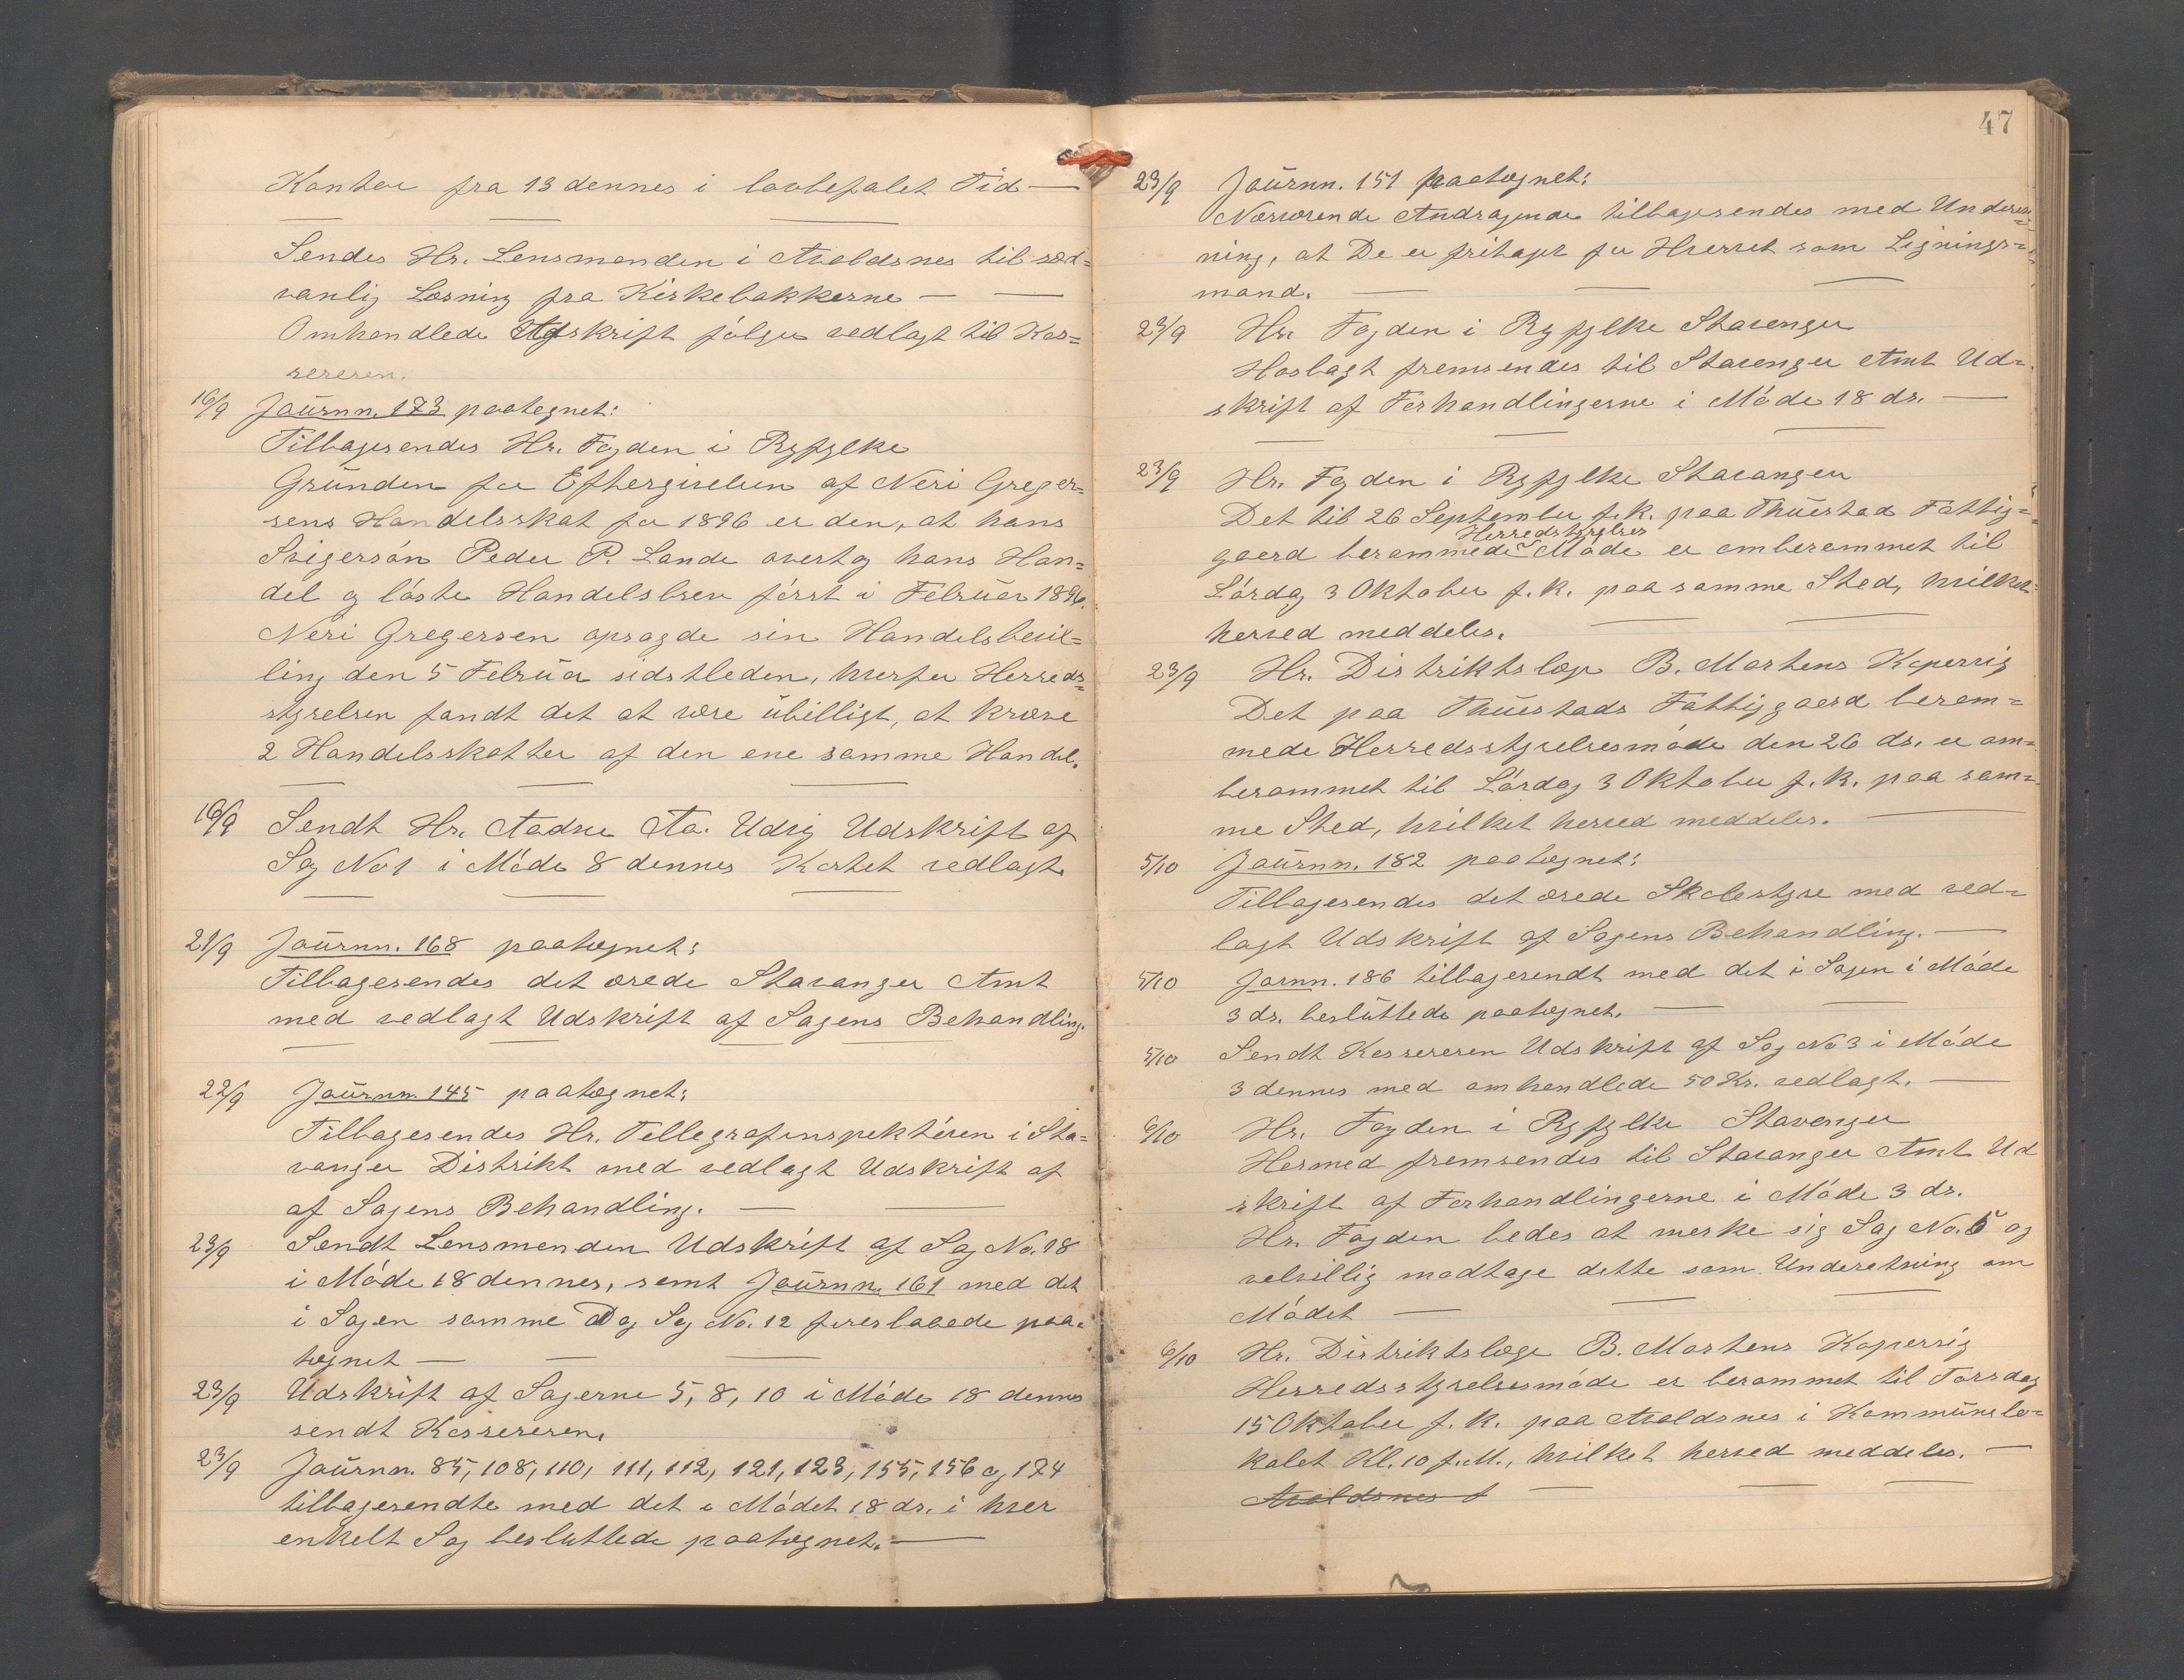 Kontor fra 13 dennes i lovbefalet Tid —
Sendes Hr. Lensmanden i Avaldsnes til sæd=
vanlig Læsning fra Kirkebakkerne —
Omhandlede Udskrift følger vedlagt til Kas=
sereren.
16/9 Journn. 173 paategnet:
Tilbagesendes Hr. Fogden i Ryfylke
Grunden for Eftergivelsen af Neri Greger=
sens Handelsskat for 1896 er den, at hans
Svigersøn Peder P. Lande overtog hans Han=
del og løste Handelsbrev først i Februar 1896.
Neri Gregersen opsagde sin Handelsbevil=
ling den 5 Februar sidstleden, hvorfor Herreds=
styrelsen fandt det at være ubilligt, at kræve
2 Handelsskatter af den ene samme Handel.
16/9 Sendt Hr. Aadne Aa. Udvig Udskrift af
Sag No 1 i Møde 8 dennes Kartet vedlagt.
21/9 Journn. 168 paategnet:
Tilbagesendes det ærede Stavanger Amt
med vedlagt Udskrift af Sagens Behandling.
22/9 Journn. 145 paategnet:
Tilbagesendes Hr. Tellegrafinspektøren i Sta=
vanger Distrikt med vedlagt Udskrift af
af Sagens Behandling. —
23/9 Sendt Lensmanden Udskrift af Sag No. 18
i Møde 18 dennes, samt Journn. 161 med det
i Sagen samme Dag Sag No. 12 foreslaaede paa=
tegnet —
23/9 Udskrift af Sagerne 5, 8, 10 i Møde 18 dennes
sendt Kassereren.
23/9 Journn. 85, 108, 110, 111, 112, 121, 123, 155, 156 og 174
tilbagesendte med det i Mødet 18 ds. i hver
enkelt Sag besluttede paategnet. —
47
23/9 Journn. 151 paategnet:
Nærværende Andragende tilbagesendes med Underret=
ning, at De er fritaget for Hvervet som Lignings=
mand. —
23/9 Hr. Fogden i Ryfylke Stavanger
Hoslagt fremsendes til Stavanger Amt Ud=
skrift af Forhandlingerne i Møde 18 ds. —
23/9 Hr. Fogden i Ryfylke Stavanger
Det til 26 September f. k. paa Thuestad Fattig=
Herredstyrelses
gaard berammede Møde er omberammet til
Lørdag 3 Oktober f. k. paa samme Sted, hvilket
herved meddeles.
23/9 Hr. Distriktslæge B. Martens Kopervig
Det paa Thuestads Fattiggaard beram=
mede Herredsstyrelsesmøde den 26 ds. er om=
berammet til Lørdag 3 Oktober f. k. paa sam=
me Sted, hvilket herved meddeles. —
5/10 Journn. 182 paategnet:
Tilbagesendes det ærede Skolestyre med ved=
lagt Udskrift af Sagens Behandling. —
5/10 Jornn. 186 tilbagesendt med det i Sagen i Møde
3 ds. besluttede paategnet. —
5/10 Sendt Kassereren Udskrift af Sag No 3 i Møde
3 dennes med omhandlede 50 Kr. vedlagt. —
6/10 Hr. Fogden i Ryfylke Stavanger
Hermed fremsendes til Stavanger Amt Ud
skrift af Forhandlingerne i Møde 3 ds.
Hr. Fogden bedes at merke sig Sag No. 5 og
velvillig modtage dette som Underetning om
Mødet —
6/10 Hr. Distriktslæge B. Martens Kopervig
Herredsstyrelsesmøde er berammet til Torsdag
15 Oktober f. k. paa Avaldsnes i Kommunelo=
kalet Kl. 10 f. M., hvilket herved meddeles. —
Avaldsnes f —